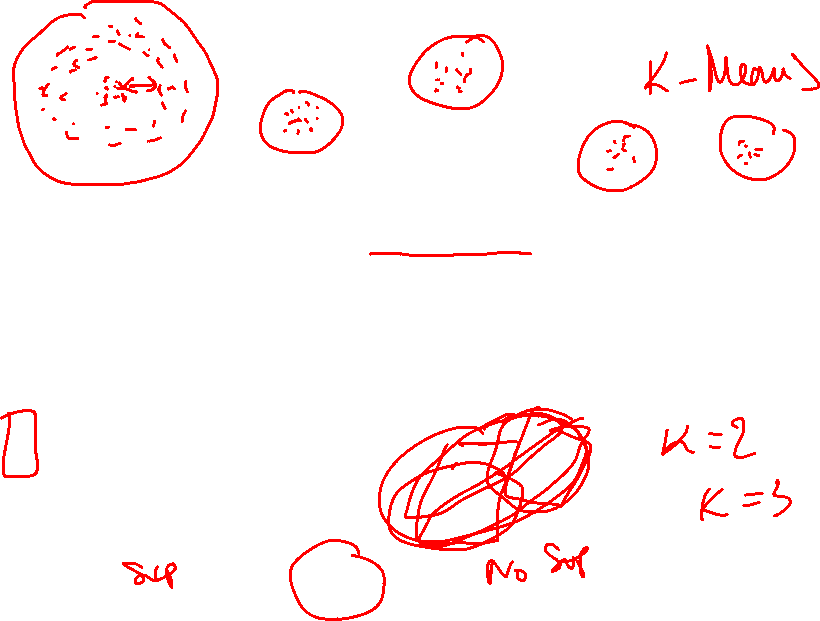 K-Means
K=2
K=3
Sup
No Sup